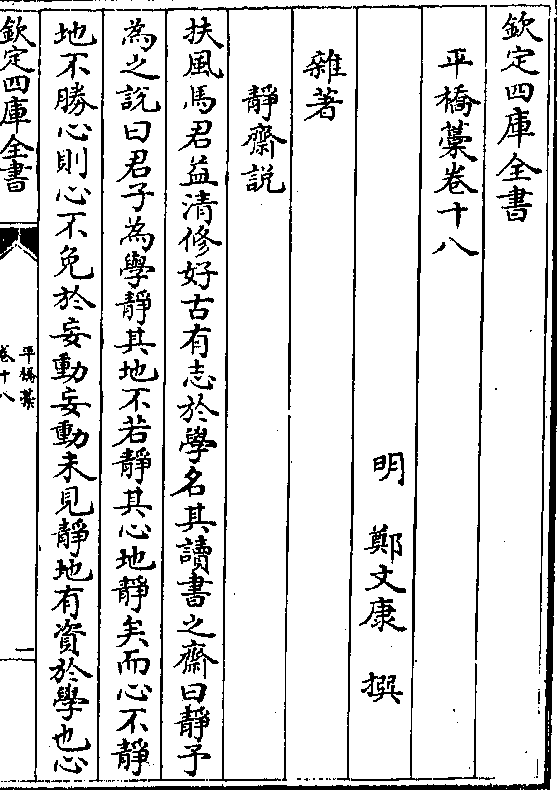 欽定四庫全書
平橋藁卷十八
明 鄭文康 撰
雜著
靜齋説
扶風馬君益清修好古有志於學名其讀書之齋曰靜予
為之説曰君子為學靜其地不若靜其心地靜矣而心不靜
地不勝心則心不免於妄動妄動未見靜地有資於學也心
欽定四庫全書
平橋藁
卷十八
一